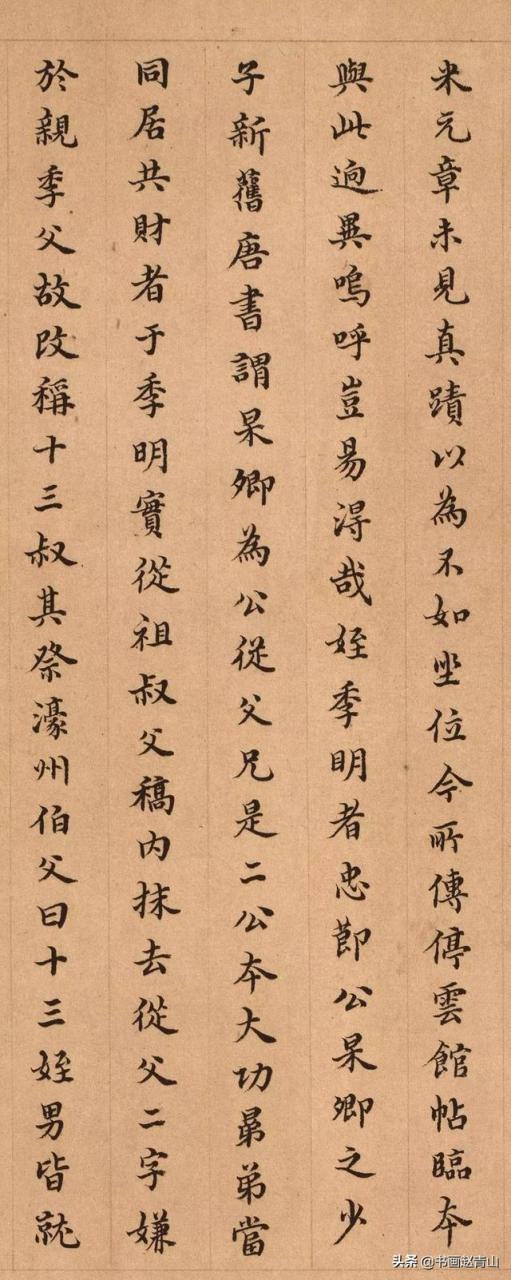 米元章未見真蹟以為不如坐位今所傳停雲館帖臨本
與此逈異嗚呼豈易淂哉姪季明者忠節公杲卿之少
子新舊唐書謂杲卿為公從父兄是二公本大功晜弟當
同居共財者于季明實從祖叔父稿内抹去從父二字嫌
於親季父故改稱十三叔其祭濠州伯父曰十三姪男皆就
头条 @书画赵青山